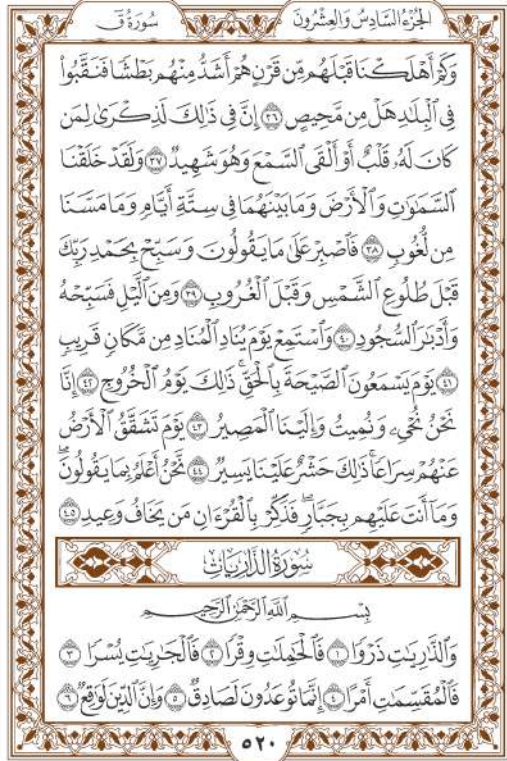 الجُزْءُ السَّادِسُ وَالعِشْرُونَ
سُورَةُ قٓ
وَكَمْ أَهْلَكْنَا قَبْلَهُم مِّن قَرْنٍ هُمْ أَشَدُّ مِنْهُم بَطْشًا فَنَقَّبُوا۟
فِى ٱلْبِلَـٰدِ هَلْ مِن مَّحِيصٍ ٣٦ إِنَّ فِى ذَٰلِكَ لَذِكْرَىٰ لِمَن
كَانَ لَهُۥ قَلْبٌ أَوْ أَلْقَى ٱلسَّمْعَ وَهُوَ شَهِيدٌ ٣٧ وَلَقَدْ خَلَقْنَا
ٱلسَّمَـٰوَٰتِ وَٱلْأَرْضَ وَمَا بَيْنَهُمَا فِى سِتَّةِ أَيَّامٍ وَمَا مَسَّنَا
مِن لُّغُوبٍ ٣٨ فَٱصْبِرْ عَلَىٰ مَا يَقُولُونَ وَسَبِّحْ بِحَمْدِ رَبِّكَ
قَبْلَ طُلُوعِ ٱلشَّمْسِ وَقَبْلَ ٱلْغُرُوبِ ٣٩ وَمِنَ ٱلَّيْلِ فَسَبِّحْهُ
وَأَدْبَـٰرَ ٱلسُّجُودِ ٤٠ وَٱسْتَمِعْ يَوْمَ يُنَادِ ٱلْمُنَادِ مِن مَّكَانٍ قَرِيبٍ
٤١ يَوْمَ يَسْمَعُونَ ٱلصَّيْحَةَ بِٱلْحَقِّ ۚ ذَٰلِكَ يَوْمُ ٱلْخُرُوجِ ٤٢ إِنَّا
نَحْنُ نُحْىِۦ وَنُمِيتُ وَإِلَيْنَا ٱلْمَصِيرُ ٤٣ يَوْمَ تَشَقَّقُ ٱلْأَرْضُ
عَنْهُمْ سِرَاعًا ۚ ذَٰلِكَ حَشْرٌ عَلَيْنَا يَسِيرٌ ٤٤ نَّحْنُ أَعْلَمُ بِمَا يَقُولُونَ ۖ
وَمَآ أَنتَ عَلَيْهِم بِجَبَّارٍ ۖ فَذَكِّرْ بِٱلْقُرْءَانِ مَن يَخَافُ وَعِيدِ ٤٥
سُورَةُ الذَّارِيَاتِ
بِسْمِ ٱللَّهِ ٱلرَّحْمَـٰنِ ٱلرَّحِيمِ
وَٱلذَّٰرِيَـٰتِ ذَرْوًا ١ فَٱلْحَـٰمِلَـٰتِ وِقْرًا ٢ فَٱلْجَـٰرِيَـٰتِ يُسْرًا ٣
فَٱلْمُقَسِّمَـٰتِ أَمْرًا ٤ إِنَّمَا تُوعَدُونَ لَصَادِقٌ ٥ وَإِنَّ ٱلدِّينَ لَوَٰقِعٌ ٦
٥٢٠